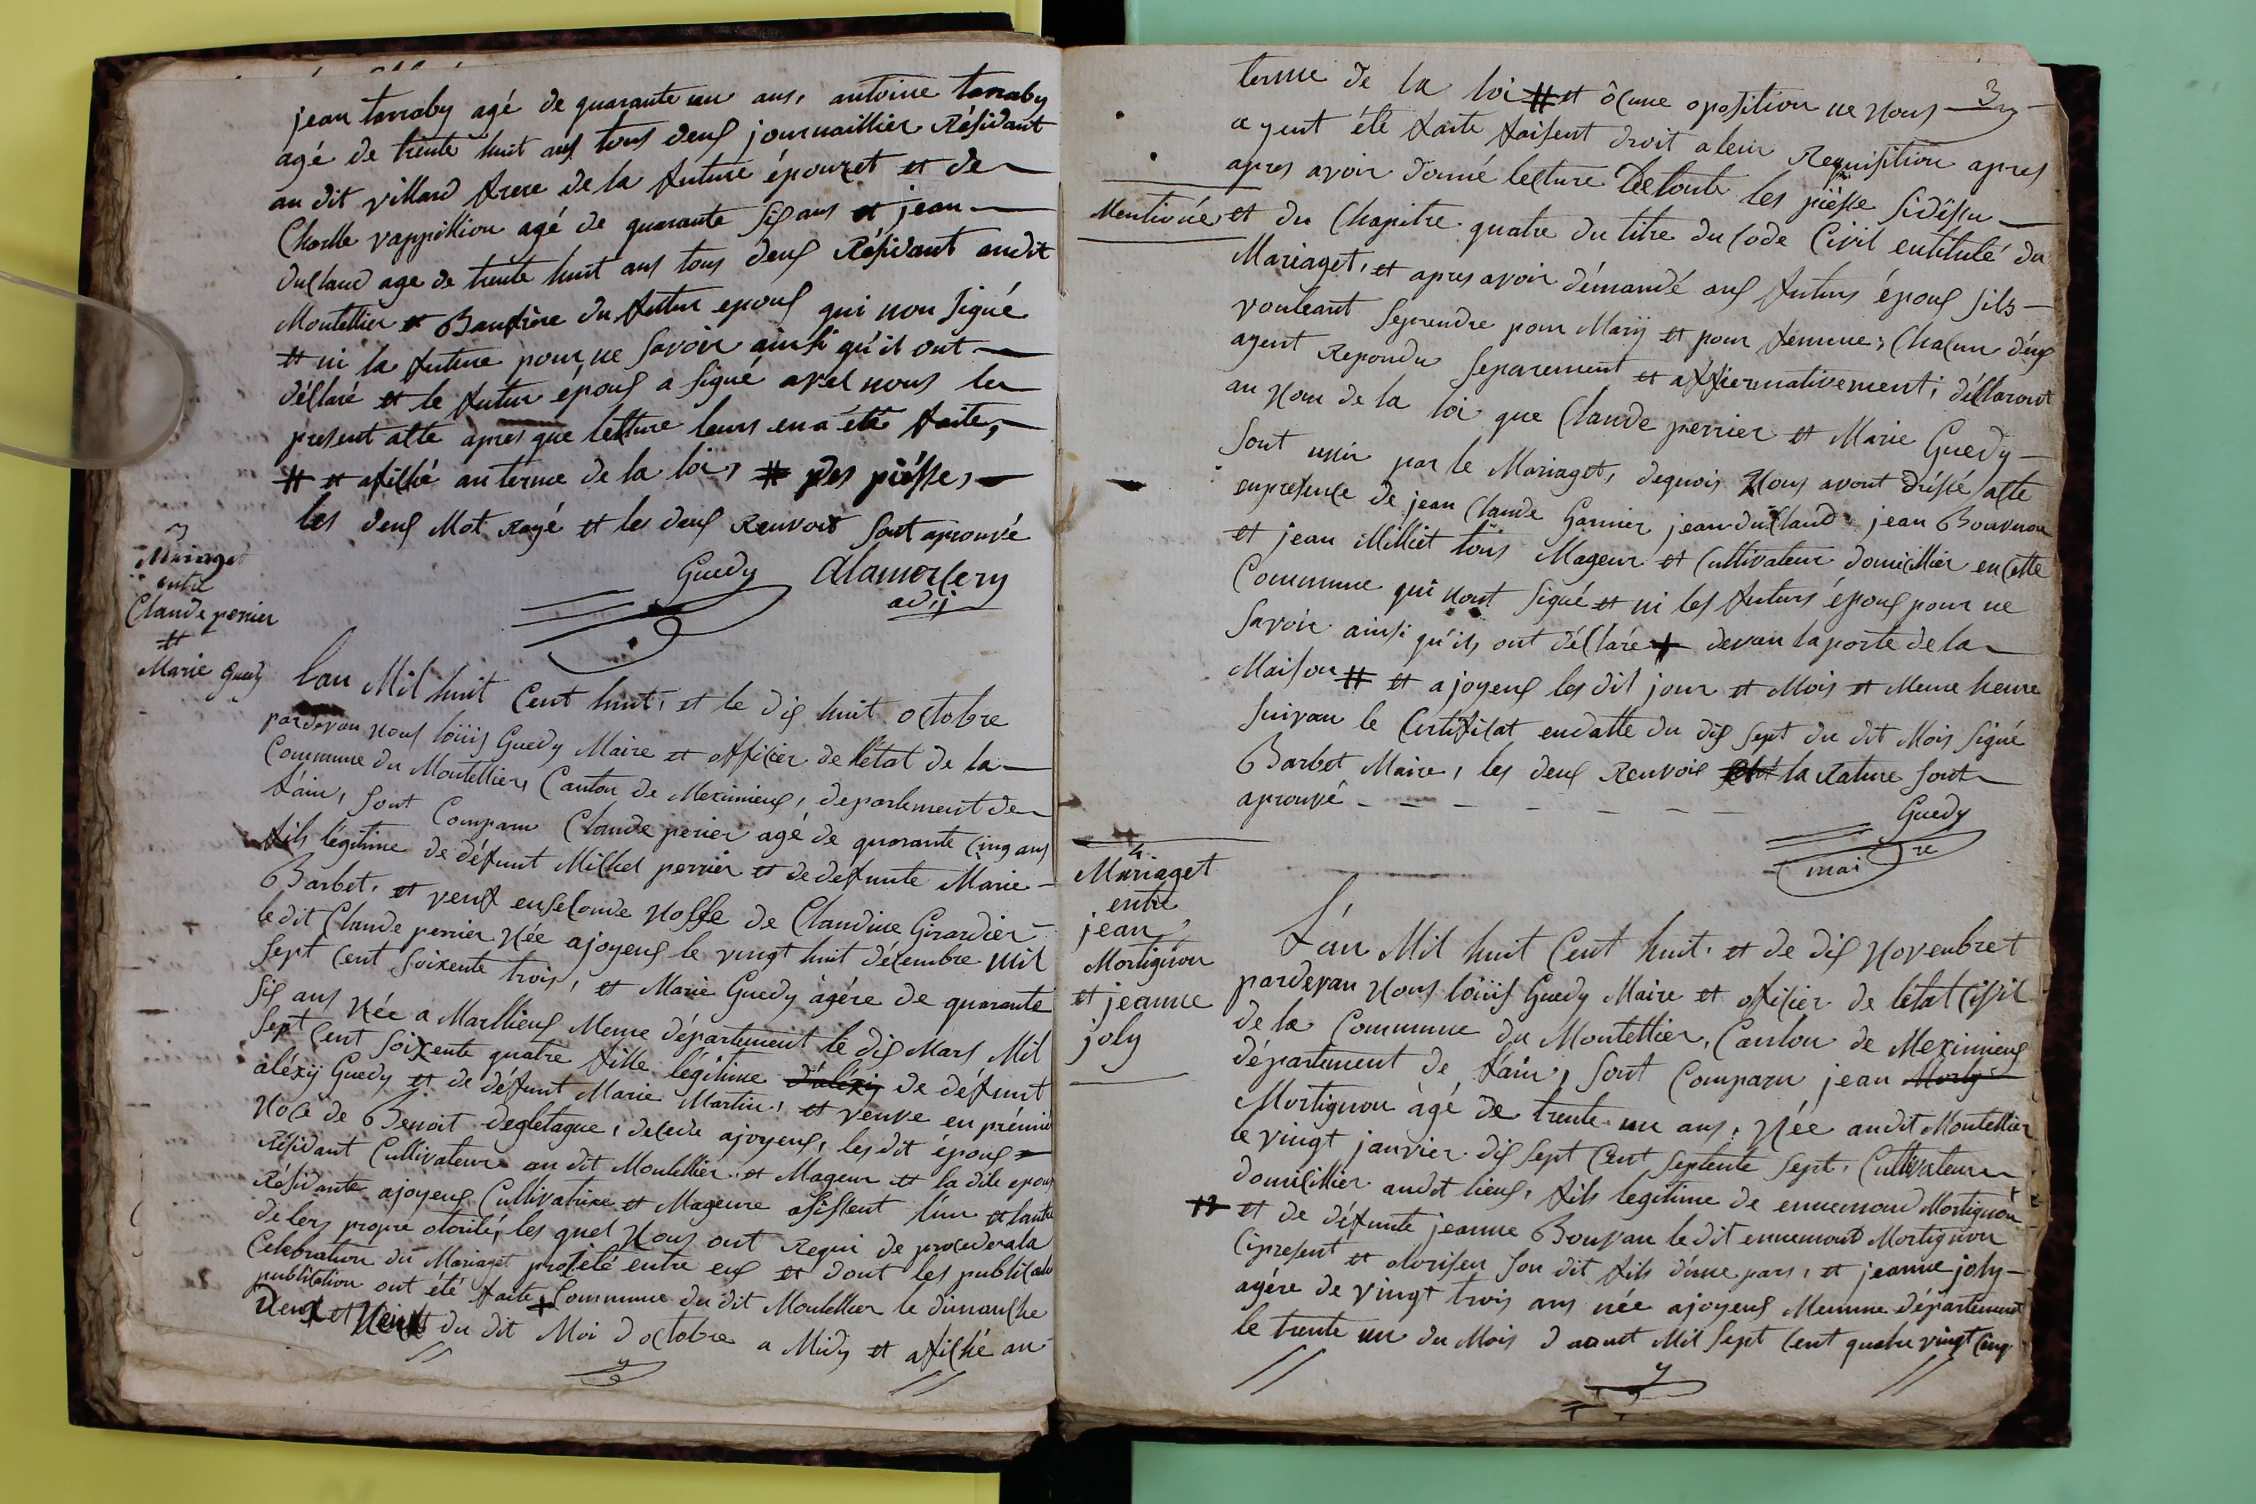 jean tarraby agé de quarante un ans, antoine tarraby
agé de trente huit ans tous deux journaillier Résidant
au dit villard frere de la future épouzet et de
Charlle vappillion agé de quarante six ans et jean
duclaud age de trente huit ans tous deux Résidant audit
Montellier et Baufrère du futur epoux qui non signé
et ni la future pour ne savoir ainsi qu'il ont
déllaré et le futur époux a signé avec nous le
present atte apres que letture leurs en a été faite,
# et afiché au terme de la loi, # des piésse,
les deux Mot rayé et les deux Renvois sont aprouvé
Guedy Alamercery
adij
3
Mariaget
entre
Claude perrier
et
Marie Guedy
L'an Mil huit Cent huit, et le dix huit octobre
pardevan nous loüis Guedy Maire et officier de l'état de la
Commune du Montellier, Canton de Meximieux, departement de
l'ain, sont Comparu Claude perier agé de quarante Cinq ans
fils légitime de défunt Milhel perrier et de defunte Marie
Barbet, et veuf en seconde Nosse de Claudine Girardier
ledit Claude perrier Née ajoyeux le vingt huit décembre mil
sept Cent soixente trois, et Marie Guedy àgére de quarante
six ans Née a Marllieux Meme département le dix Mars Mil
sept Cent soixente quatre fille légitime d'aléxij de défunt
aléxij Guedy et de défunt Marie Martin, et veuve en prémiè
Noce de Benoit degletague, decede ajoyeux, les dit époux
Résidant Cultivateur au dit Montellier et Mageur et la dite epous
Résidante ajoyeux Cultivatrixe et Mageure asistent l'un et lautre
de lers propre otorité, les quel Nous ont Requi de proceder a la
Celebration du Mariaget projété entre eux et dont les publicatio
publication ont été faite + Commune du dit Montellier le dimanche
deux et Neuf du dit Moi d octobre a Midy et afiché au
3
terme de la loi # et ôcune oposition ne nous
ayent été faite faisent droit a leur Requisition apres
apres avoir donné lecture De toute les piésse sidésu
Mentionée et du Chapitre quatre du titre du Code Civil entitulé du
Mariaget, et apres avoir démandé aux futurs époux sils
vouleant seprendre pour Marij et pour femme; Chacun d'eux
ayent Repondu separement et affiermativement; déllarons
au Nom de la loi que Claude perrier et Marie Guedy
sont unir par le Mariaget, dequois Nous avont dréssé atte
enpresence de jean Claude Garnier jean duclaud jean Bouvnou
et jean Milliet toüs Mageur et Cultivateur domicillier en Cette
Commune qui nont signé et ni les futurs époux pour ne
savoir ainsi qu'ils ont déclaré + devan la porte de la
Maison # et ajoyeux les dit jour et Mois et Meme heure
suivan le Certificat endatte du dix sept du dit Mois signé
Barbet Maire, les deux Renvoie et la Rature sont
aprouvé
Guedy
maire
4
Mariaget
entre
jean
Mortignon
et jeanne
joly
L'an Mil huit Cent huit, et de dix Novenbret
pardevan Nous loüis Guedy Maire et oficier de létat Civil
de la Commune du Montellier, Canton de Meximieux
département de l'ain, sont Comparu jean Morty
Mortignon àgé de trente un ans, Née audit Montellier
le vingt janvier dix sept Cent septente sept, Cultivateur
domicillier audit lieux, fils legitime de ennemond Mortignon
# et de défunte jeanne Bouvan le dit ennemond Mortignon
Cipresent et otorisen son dit fils d'une pars, et jeanne joly
agére de vingt trois ans née ajoyeux Memme département
le trente un du Mois d aoust Mil sept Cent quatre vingt Cinq